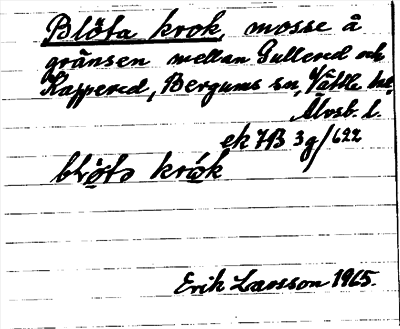 Blöta krok, mosse å
gränsen mellan Gullered och
Kappered, Bergums sn, Vättle hd,
Älvsb. l.
ek 7B 3g/622
bløta krøk
Erik Larsson 1965.